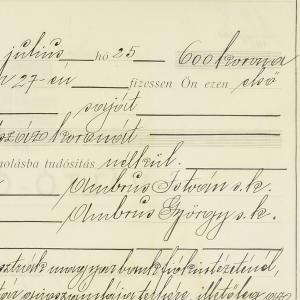 július hó 25 600 korona
27-én fizessen Ön ezen első
saját
száz koronát
molásba tudósítás nélkül.
Ambrus István s. k.
Ambrus György s. k.
magyar bank fiókintézeténél,
terhére, illetőleg az